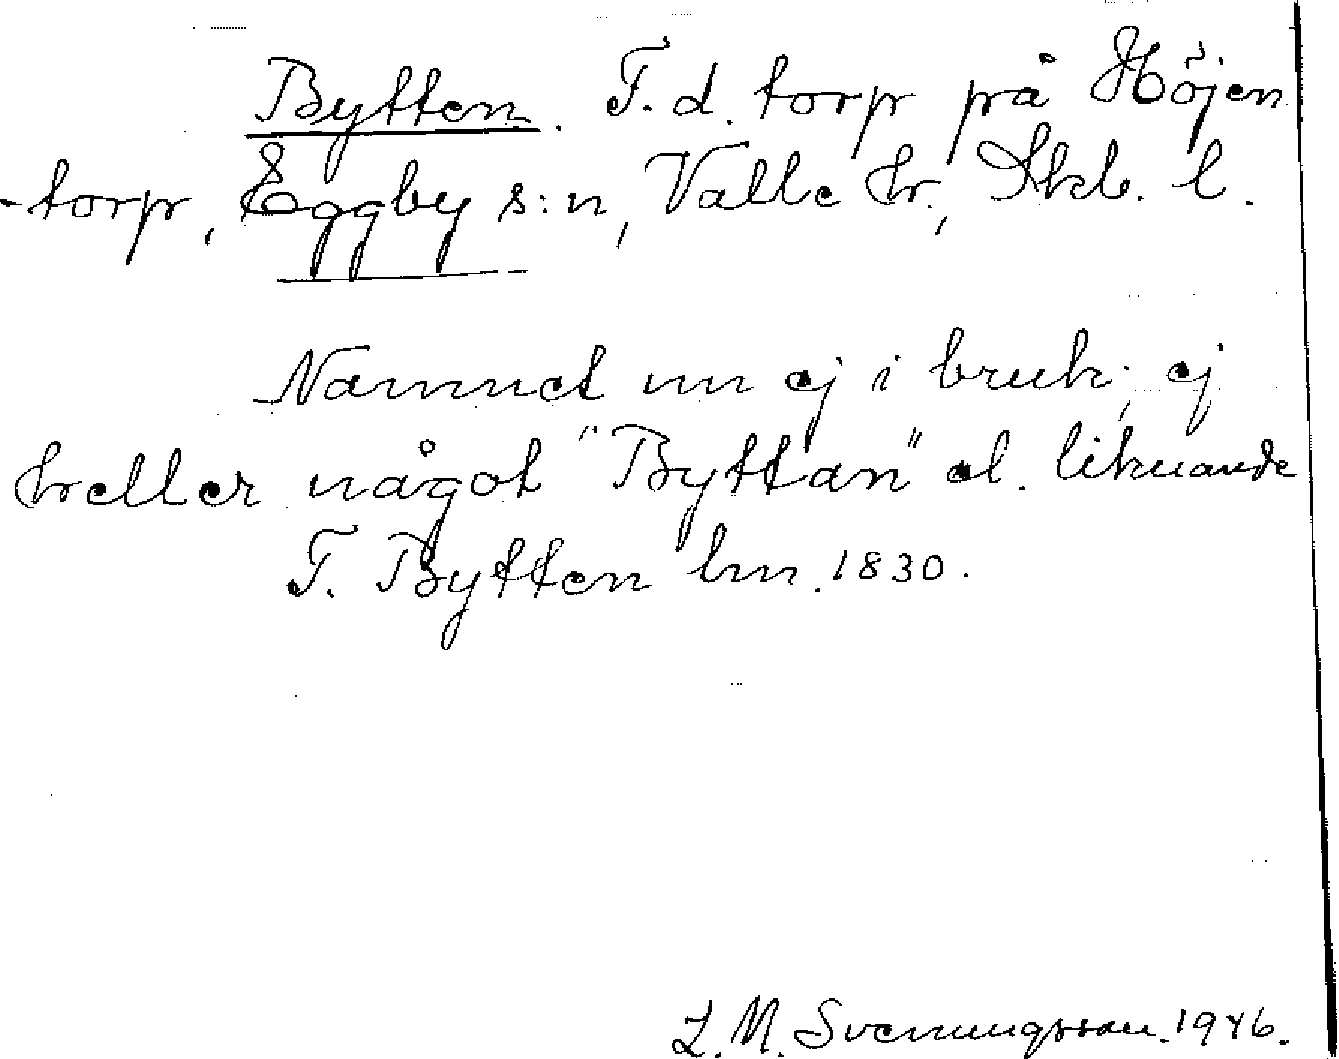 Bytten. F.d. torp på Höjen
-torp, Eggby s:n, Valle hr., Skb. l.
Namnet nu ej i bruk; ej
heller något "Byttan" el. liknande
T. Bytten hm. 1830.
L. M. Svenungsson. 1946.